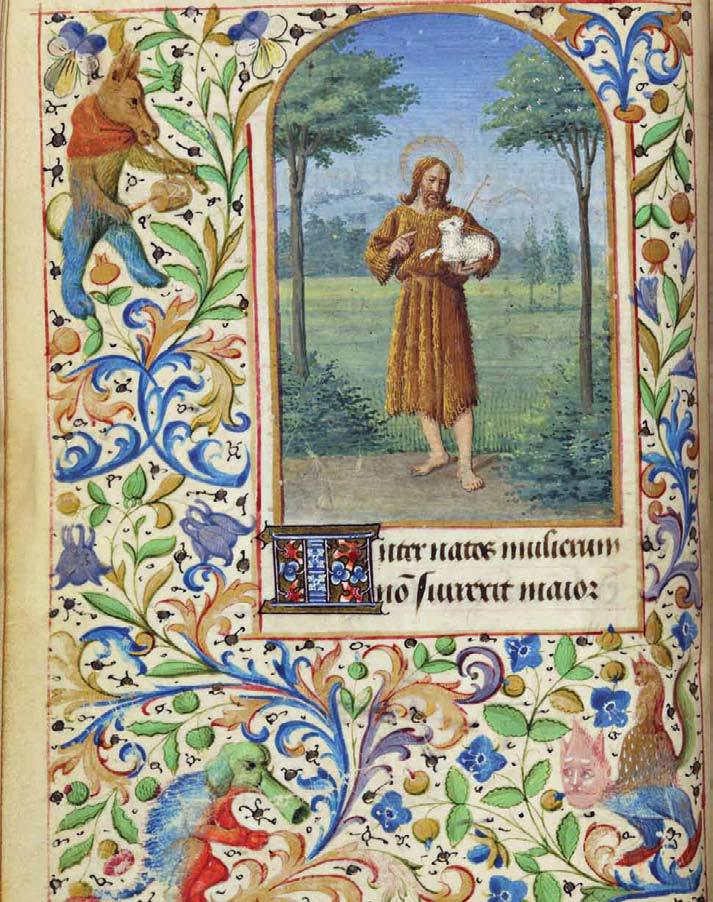 Inter natos mulierum
nō surrexit maior